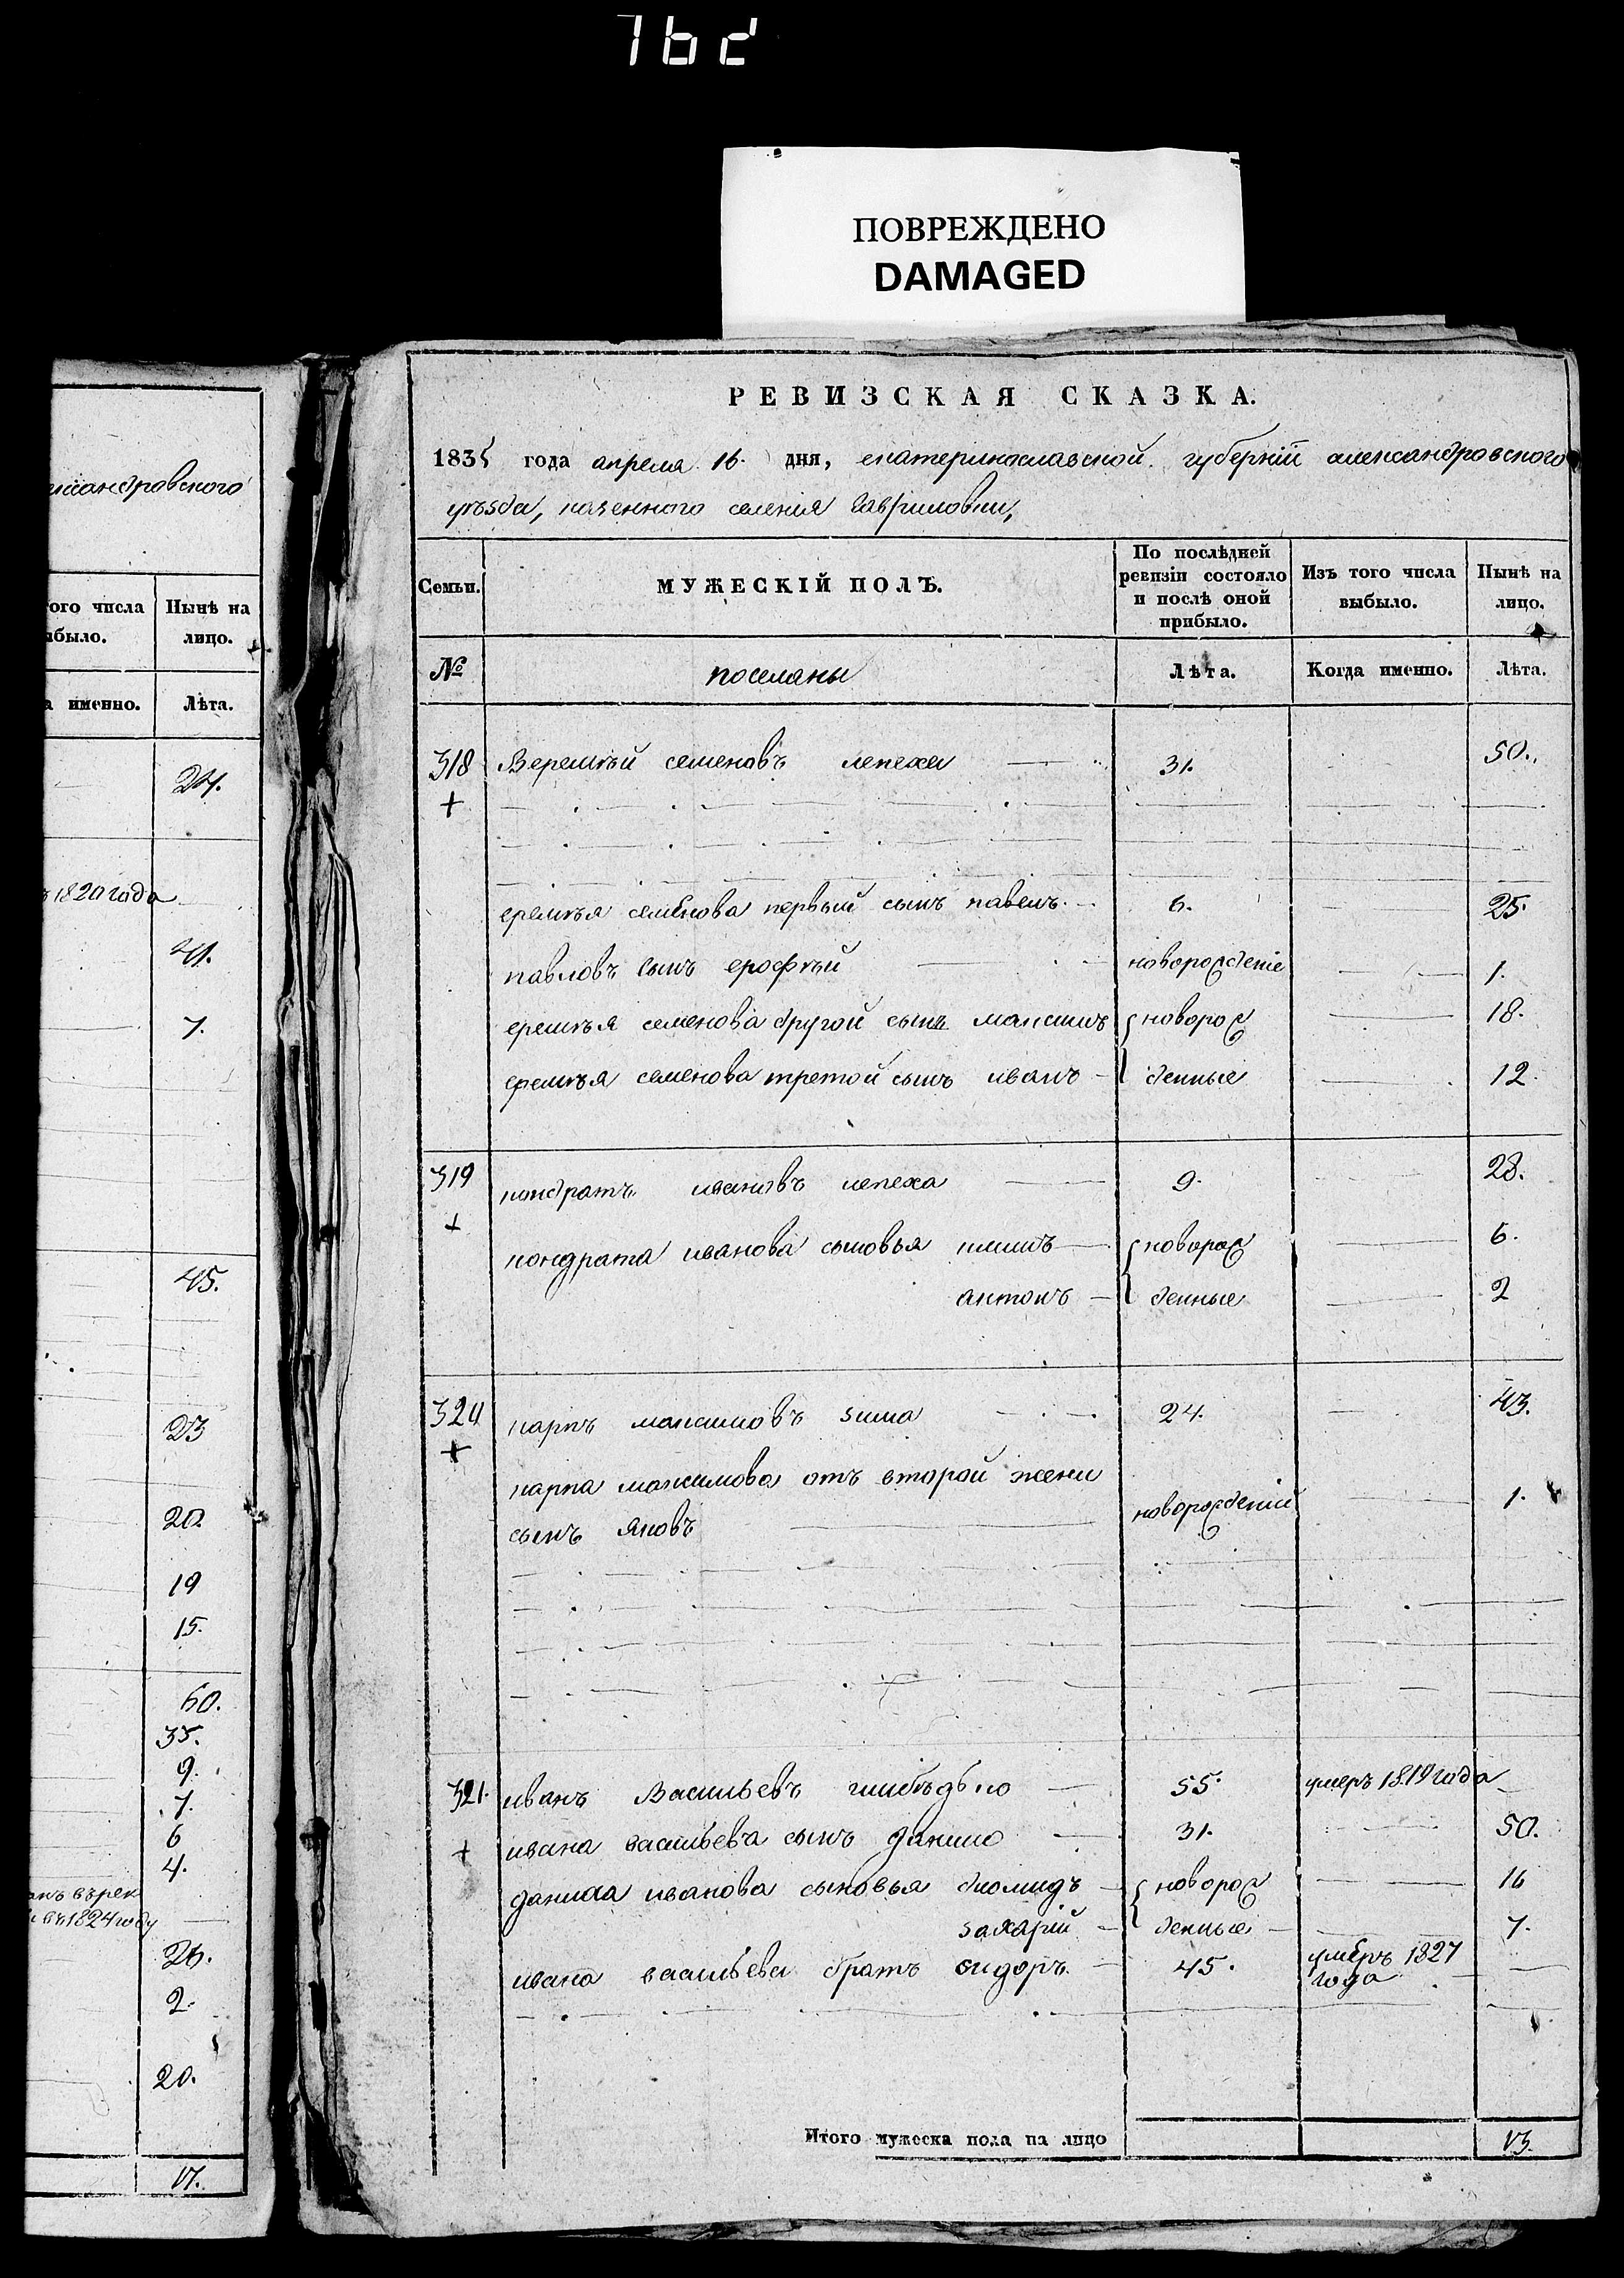 762
ПОВРЕЖДЕНО
DAMAGED
ександровского
того числа
ыбыло.
Нынѣ на
лицо.
а именно.
Лѣта.
24.
ъ 1820 года
41.
7.
45.
23
20.
19
15.
60.
35.
9.
7.
6
4.
въ 1824 году
26.
2.
20.
17.
РЕВИЗСКАЯ СКАЗКА.
1835 года апреля 16 дня, екатеринославской губерніи александровского
уѣзда, казенного селенія Гавриловки,
Семьи.
МУЖЕСКІЙ ПОЛЪ.
По послѣдней
ревизіи состояло
и послѣ оной
прибыло.
Изъ того числа
выбыло.
Нынѣ на
лицо.
№ поселяны Лѣта. Когда именно. Лѣта.
318 Веремѣй семеновъ лепеха 31. 50.
еремѣя семенова первый сынъ павелъ 6. 25.
павловъ сынъ ерофѣй новорожденіе 1.
еремѣя семенова другой сынъ максимъ новорож 18.
еремѣя семенова третой сынъ иванъ денные 12.
319 кондратъ ивановъ лепеха 9. 28.
кондрата иванова сыновья климъ новорож 6.
антонъ денные 2
320 карпъ максимовъ зима 24. 43.
карпа максимова отъ второй жени
сынъ яковъ новорожденій 1.
321. иванъ Васильевъ 55. умеръ 1819 года
ивана васильева сынъ данило 31. 50.
данила иванова сыновья диомидъ новорож 16
захарій денные 7.
ивана васильева братъ сидоръ 45. умеръ 1827
года
Итого мужеска пола на лицо 13.